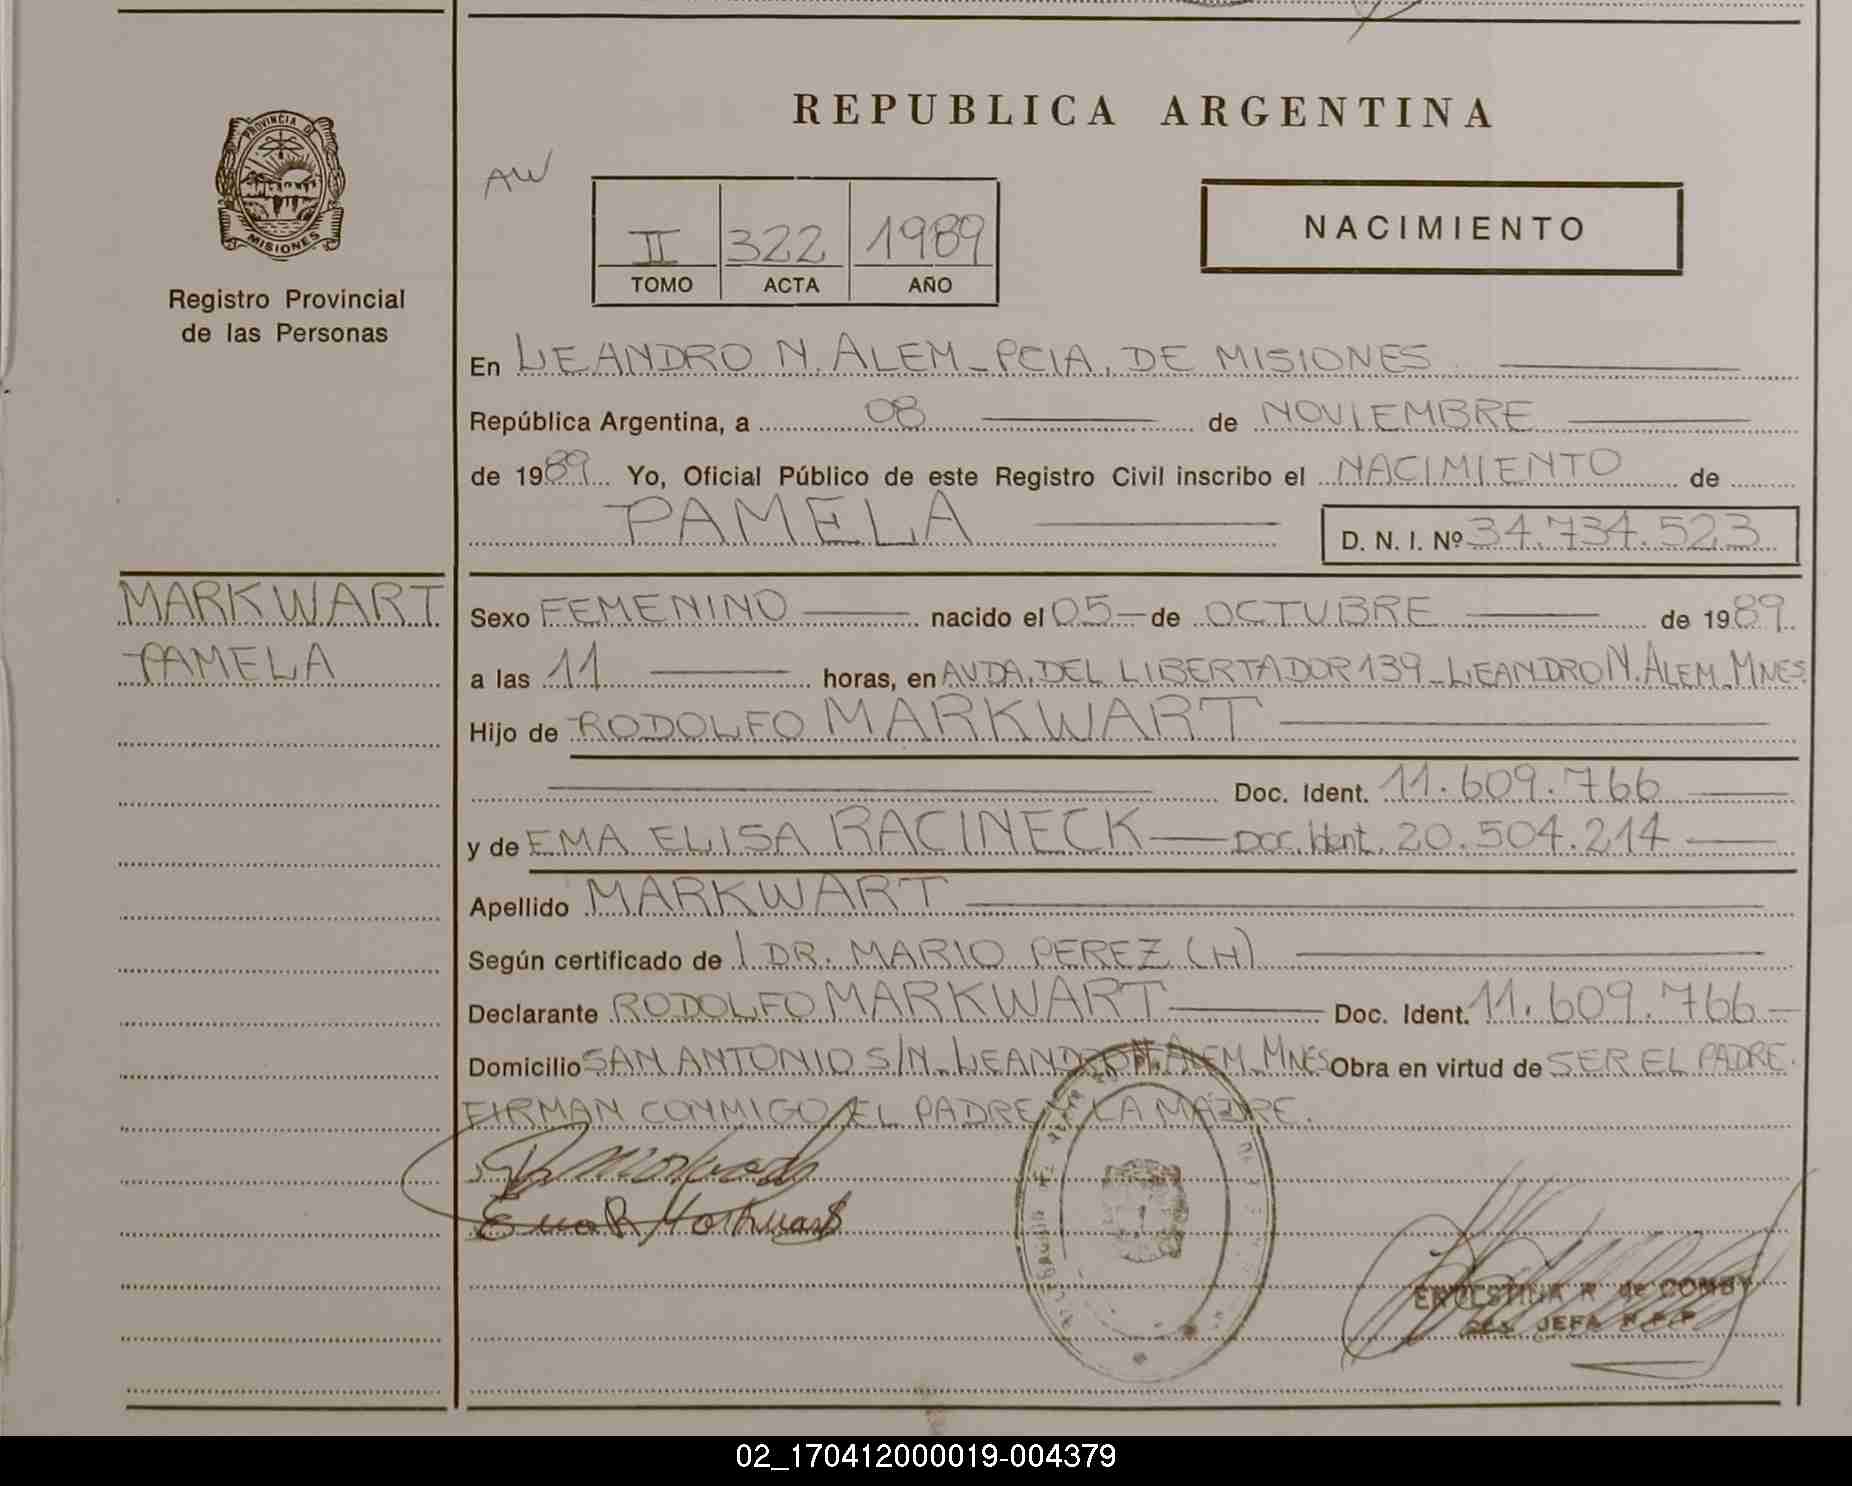 REPUBLICA ARGENTINA
PROVINCIA DE
MISIONES
Registro Provincial
de las Personas
AW
II 322 1989
TOMO ACTA AÑO
NACIMIENTO
En LEANDRO N. ALEM_PCIA. DE MISIONES
República Argentina, a 08 de NOVIEMBRE
de 1989 Yo, Oficial Público de este Registro Civil inscribo el NACIMIENTO de
PAMELA D. N. I. Nº 34.734.523
MARKWART
PAMELA
Sexo FEMENINO nacido el 05 de OCTUBRE de 1989
a las 11 horas, en AVDA. DEL LIBERTADOR 139_LEANDRO N. ALEM_MNES.
Hijo de RODOLFO MARKWART
Doc. Ident. 11.609.766
y de EMA ELISA RACINECK Doc. Ident. 20.504.214
Apellido MARKWART
Según certificado de DR. MARIO PEREZ (H)
Declarante RODOLFO MARKWART Doc. Ident. 11.609.766
Domicilio SAN ANTONIO S/N_LEANDRO N. ALEM_MNES Obra en virtud de SER EL PADRE.
FIRMAN CONMIGO EL PADRE Y LA MADRE.
ERNESTINA R de COMBY
JEFA R.P.P
02_170412000019-004379